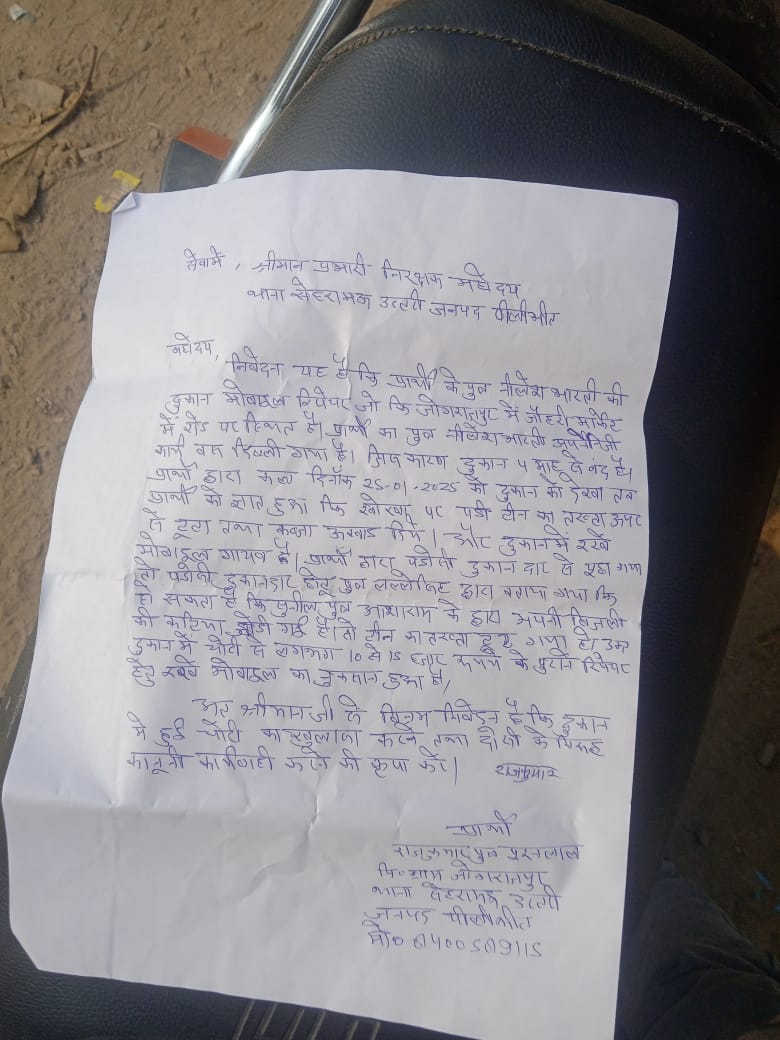 सेवामें, श्रीमान प्रभारी निरक्षक महोदय
थाना सेहरामऊ उत्तरी जनपद पीलीभीत
महोदय,
निवेदन यह है कि प्रार्थी के पुत्र नीलेश भारती की
दुकान मोबाइल रिपेयर जो कि जोगराजपुर में जौहरी मार्केट
में रोड पर स्थित है। प्रार्थी का पुत्र नीलेश भारती अपने निजी
कार्य वश दिल्ली गया है। जिस कारण दुकान 4 माह से बंद है।
प्रार्थी द्वारा कल दिनाँक 25-01-2025 को दुकान को देखा तब
प्रार्थी को ज्ञात हुआ कि पर पड़ी टीन का तख्ता ऊपर
से टूटा तथा कब्जा मिले। और दुकान में रखे
मोबाइल गायब है। प्रार्थी द्वारा पडोसी दुकान दार से पूछा गया
तो पडोसी दुकानदार पुत्र द्वारा बताया गया कि
हो सकता है कि सुनील पुत्र आशाराम के द्वारा अपनी बिजली
की कटिया जोडी गई है। तो टीन का तख्ता टूट गया हो। उक्त
दुकान में चोरी से लगभग 10 से 15 हजार रूपये के पुराने रिपेयर
हेतु रखे मोबाइल का नुकसान हुआ है।
अतः श्रीमान जी से विनम्र निवेदन है कि दुकान
मे हुई चोरी का खुलासा करने तथा दोषी के विरूद्ध
कानूनी कार्यवाही करने की कृपा करें। राजकुमार
प्रार्थी
राजकुमार पुत्र
नि० ग्राम जोगराजपुर
थाना सेहरामऊ उत्तरी
जनपद पीलीभीत
मो०